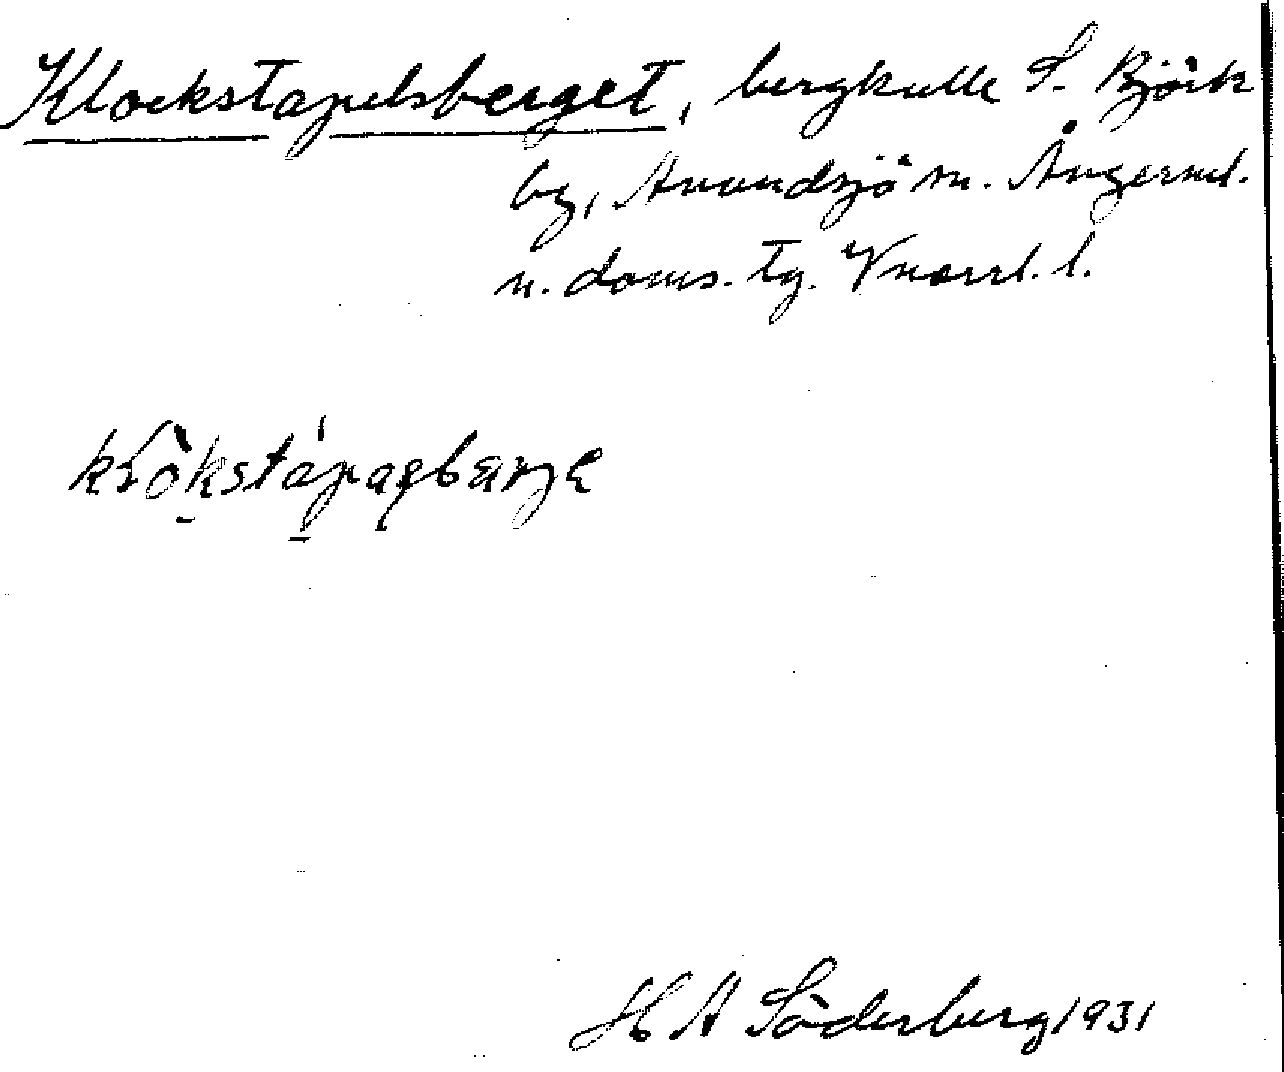 Klockstapelsberget, bergkulle S. Björk
by, Anundsjö sn. Ångerml.
n. doms. tg. Vnorrl. l.
H A Söderberg 1931